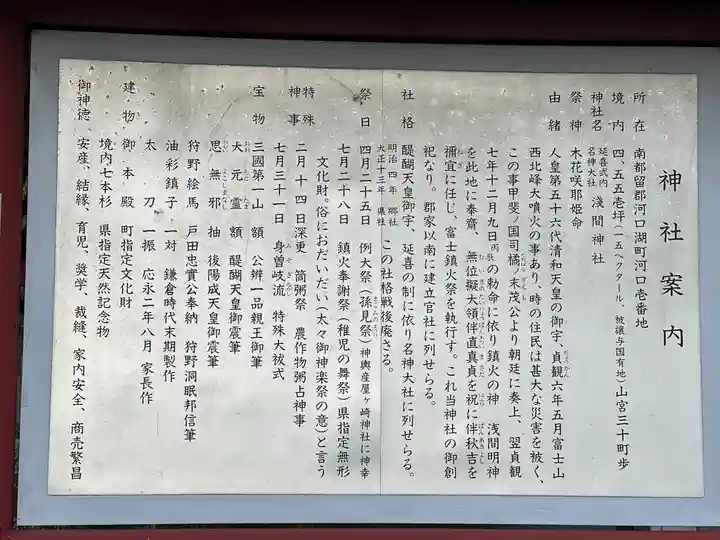 神社案内
所在 南都留郡河口湖町河口壱番地
境内 四、五五壱坪(一五ヘクタール、被譲与国有地)山宮三十町歩
神社名 延喜式内 名神大社 浅間神社
祭神 木花咲耶姫命
由緒 人皇第五十六代清和天皇の御宇、貞観六年五月富士山
西北峰大噴火の事あり、時の住民は甚大な災害を被く、
この事甲斐ノ国司橘ノ末茂公より朝廷に奏上、翌貞観
七年十二月九日丙辰の勅命に依り鎮火の神 浅間明神
を此地に奉齋、無位擬大領伴直真貞を祝に伴秋吉を
禰宜に任じ、富士鎮火祭を執行す。これ当神社の御創
祀なり。郡家以南に建立官社に列せらる。
社格 醍醐天皇御宇、延喜の制に依り名神大社に列せらる。
明治四年 郷社
大正十三年 県社 この社格戦後廃さる。
祭日 四月二十五日 例大祭(孫見祭)神輿産屋ヶ崎神社に神幸
七月二十八日 鎮火奉謝祭(稚児の舞祭)県指定無形
文化財。俗におだいだい(太々御神楽祭の意)と言う
特殊神事 二月十四日深更 筒粥祭 農作物粥占神事
七月三十一日 身曽岐流 特殊大祓式
宝物 三國第一山 額 公辨一品親王御筆
大元靈 額 醍醐天皇御宸筆
思無邪 抽 後陽成天皇御宸筆
狩野絵馬 戸田忠實公奉納 狩野洞眠邦信筆
油彩鎮子 一対 鎌倉時代末期製作
太刀 一振 応永二年八月 家長作
建物 御本殿 町指定文化財
境内七本杉 県指定天然記念物
御神徳、安産、結縁、育児、奨学、裁縫、家内安全、商売繁昌